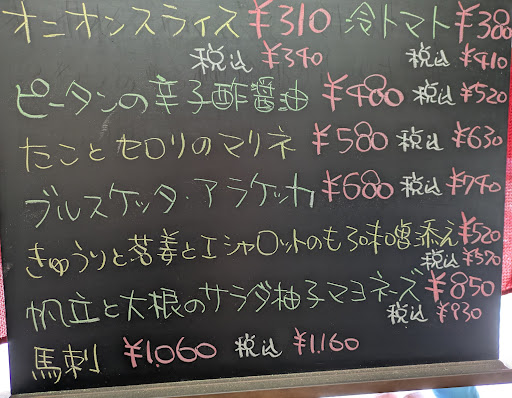 オニオンスライス ¥310 冷トマト ¥380
税込 ¥340 税込 ¥410
ピータンの辛子酢醤油 ¥480 税込 ¥520
たことセロリのマリネ ¥580 税込 ¥630
ブルスケッタ・アラケッカ ¥680 税込 ¥740
きゅうりと茗姜とエシャロットのもろ味噌添え ¥520
税込 ¥570
帆立と大根のサラダ柚子マヨネーズ ¥850
税込 ¥930
馬刺 ¥1,060 税込 ¥1,160